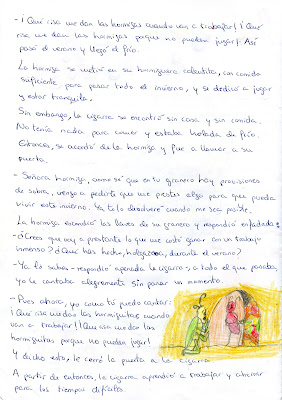 - ¡Qué risa me dan las hormigas cuando van a trabajar! ¡Qué
risa me dan las hormigas porque no pueden jugar! Así
pasó el verano y llegó el frío.
La hormiga se metió en su hormiguero calentita, con comida
suficiente, para pasar todo el invierno, y se dedicó a jugar
y estar tranquila.
Sin embargo, la cigarra se encontró sin casa y sin comida.
No tenía nada para comer y estaba helada de frío.
Entonces, se acordó de la hormiga y fue a llamar a su
puerta.
- Señora hormiga, como sé que en su granero hay provisiones
de sobra, vengo a pedirte que me prestes algo para que pueda
vivir este invierno. Ya te lo devolveré cuando me sea posible.
La hormiga escondió las llaves de su granero y respondió enfadada:
- ¿Crees que voy a prestarte lo que me costó ganar con un trabajo
inmenso? ¿Qué has hecho, holgazana, durante el verano?
- Ya lo sabes - respondió apenada la cigarra -, a todo el que pasaba,
yo le cantaba alegremente sin parar un momento.
- Pues ahora, yo como tú puedo cantar:
¡Qué risa me dan las hormiguitas cuando
van a trabajar! ¡Qué risa me dan las
hormiguitas porque no pueden jugar!
Y dicho esto, le cerró la puerta a la cigarra
A partir de entonces, la cigarra aprendió a trabajar y ahorrar
para los tiempos difíciles.